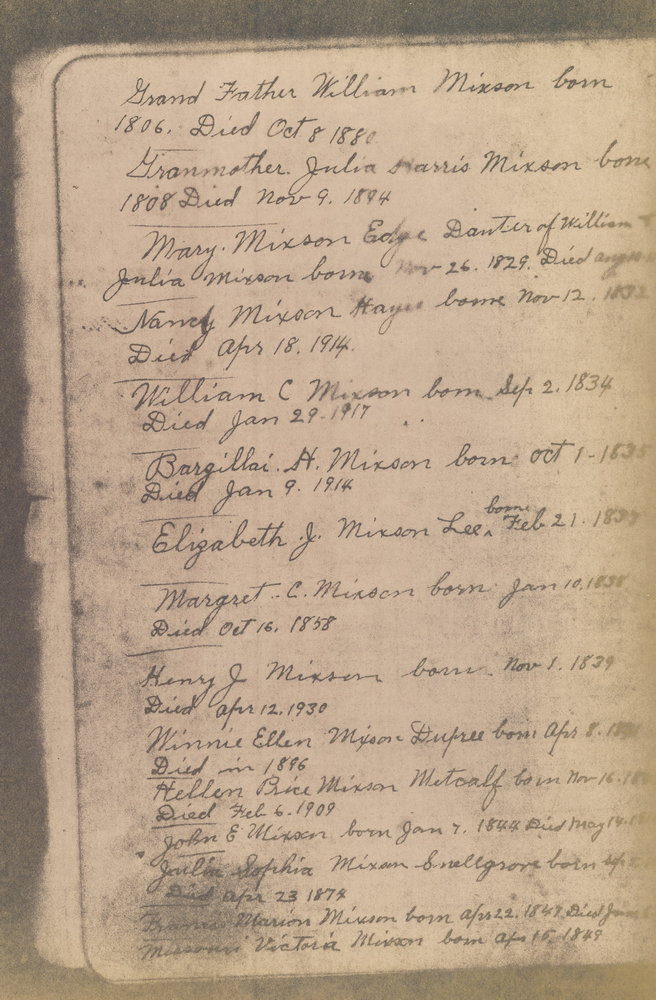 Grand Father William Mixson born
1806. Died Oct 8 1880
Granmother. Julia Harris Mixson born
1808 Died Nov 9. 1894
Mary. Mixson Edge Dauter of William
Julia Mixson born Nov 26. 1829. Died
Nancy Mixson Hayes borne Nov 12. 1832
Died Apr 18. 1914.
William C Mixson born Sep 2. 1834
Died Jan 29 1917
Bargillai. H. Mixson born oct 1-1835
Died Jan 9. 1914
born
Elizabeth J. Mixson Lee. Feb 21. 1837
Margret. C. Mixson born Jan 10, 1838
Died Oct 16. 1858
Henry J Mixson born Nov 1. 1839
Died apr 12. 1930
Winnie Ellen Mixson Dupree born Apr 8.
Died in 1896
Hellen Price Mixson Metcalf born Nov 16.
Died Feb 6. 1909
John E Mixson born Jan 7. 1844 Died May 14.
Julia Sophia Mixon Snellgrove born
Died apr 23 1874
Francis Marion Mixson born apr 22. 1847 Died
Missouri Victoria Mixson born apr 15, 1849